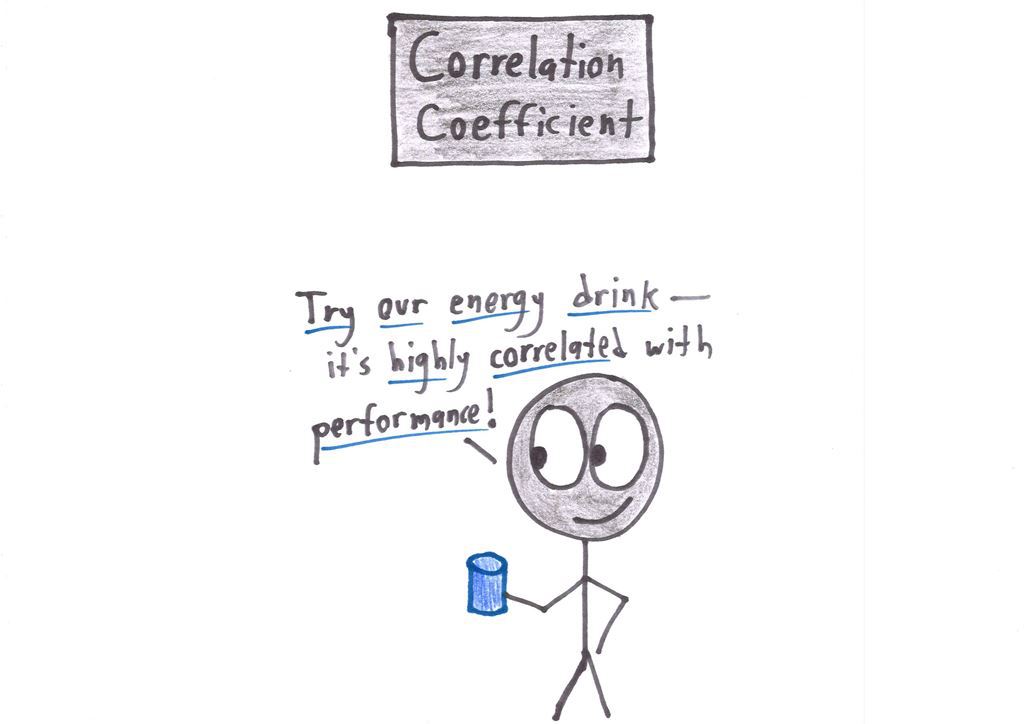 Correlation
Coefficient
Try our energy drink —
it's highly correlated with
performance!